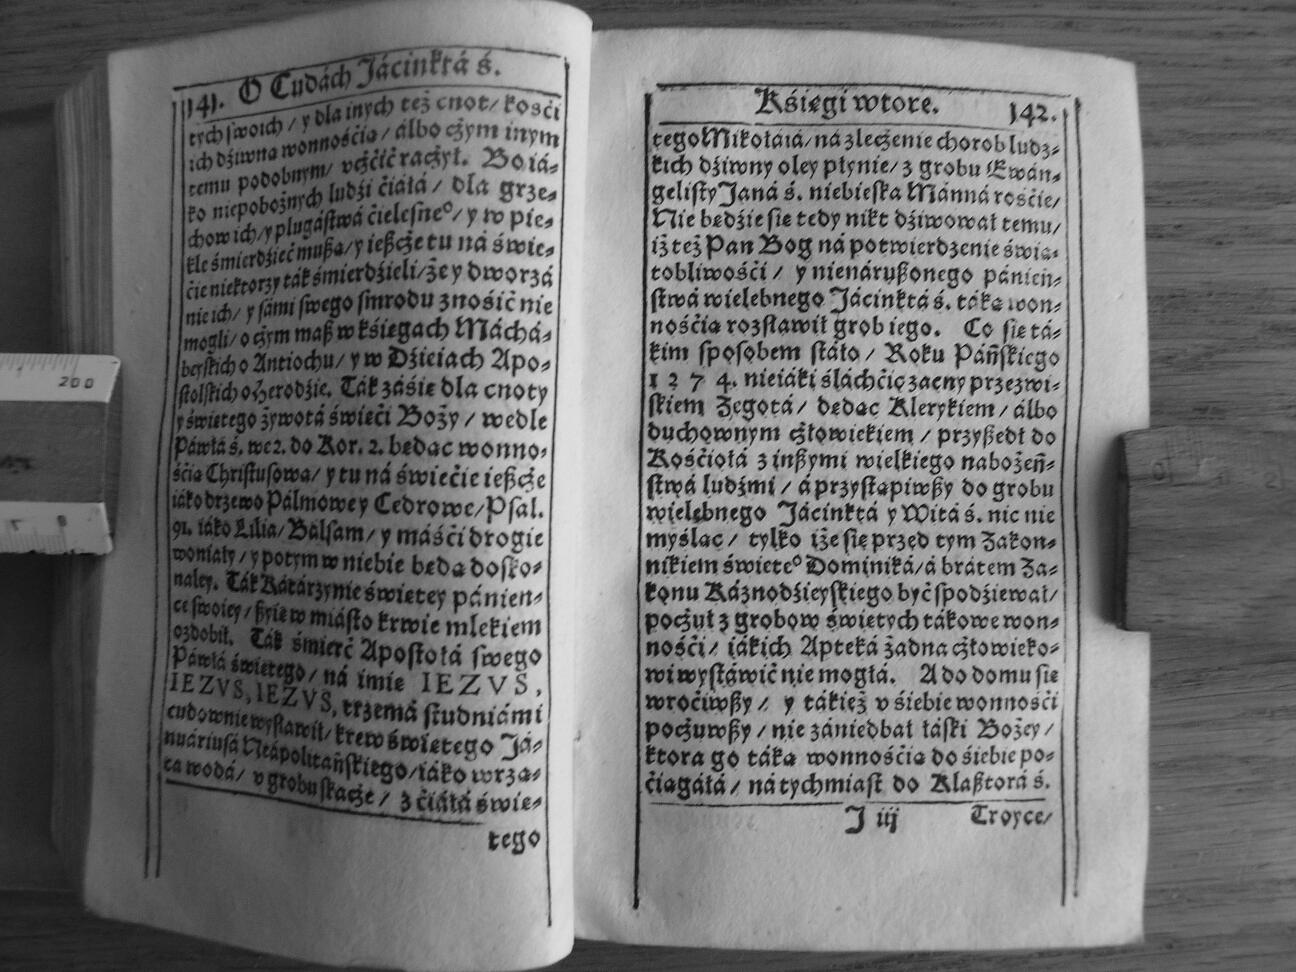 141. O Cudách Jácinktá ś.
tych swoich / y dla inych też cnot / kości
ich dźiwna wonnośćia / álbo cżym inym
temu podobnym / vcżćić racżył. Bo iá-
ko niepobożnych ludźi ćiáłá / dla grze-
chow ich / y plugástwá ćielesne° / y w pie-
kle śmierdźieć mußa / y ießcże tu ná świe-
ćie niektorzy ták śmierdźieli / że y dworzá
nie ich / y sámi swego smrodu znośić nie
mogli / o cżym maß w kśięgach Máchá-
beyskich o Antiochu / y w Dźieiach Apo-
stolskich o Herodźie. Ták záśie dla cnoty
y świetego żywotá świeći Boży / wedle
Páwłá ś. we 2. do Kor. 2. bedac wonno-
śćia Christusowa / y tu ná świećie ießcże
iáko drzewo Pálmowe y Cedrowe / Psal.
91. iáko Lilia / Bálsam / y máśći drogie
woniały / y potym w niebie beda dosko-
naley. Ták Kátárzynie świetey pánien-
ce swoiey / ßyie w miásto krwie mlekiem
ozdobił. Ták śmierć Apostołá swego
Páwłá świetego / ná imie IEZVS,
IEZVS, IEZVS, trzemá studniámi
cudownie wysławił / krew świetego Já-
nuáriusá Neápolitáńskiego / iáko wrza-
ca wodá / v grobu skacże / z ćiáłá świe-
tego
Kśięgi wtore. 142.
tego Mikołáiá / ná zlecżenie chorob ludz-
kich dźiwny oley płynie / z grobu Ewán-
gelisty Janá ś. niebieska Mánná rośćie /
Nie bedźie sie tedy nikt dźiwował temu /
iż też Pan Bog ná potwierdzenie świa-
tobliwośći / y nienárußonego pánień-
stwá wielebnego Jácinktá ś. táka won-
nośćia rozsławił grob iego. Co sie tá-
kim sposobem stáło / Roku Páńskiego
1274. nieiáki śláchćic zacny przezwi-
skiem Zegotá / bedac Klerykiem / álbo
duchownym cżłowiekiem / przyßedł do
Kośćiołá z inßymi wielkiego nabożeń-
stwá ludźmi / á przystapiwßy do grobu
wielebnego Jácinktá y Witá ś. nic nie
myślac / tylko iże się przed tym Zakon-
nikiem świete° Dominiká / á brátem Za-
konu Káznodźieyskiego być spodźiewał /
pocżuł z grobow świetych tákowe won-
nośći / iákich Apteká żadna cżłowieko-
wi wystáwić nie mogłá. A do domu sie
wroćiwßy / y tákież v śiebie wonnośći
pocżuwßy / nie zániedbał łáski Bożey /
ktora go táka wonnośćia do śiebie po-
ćiagáłá / ná tychmiast do Klaßtorá ś.
J iij Troyce /